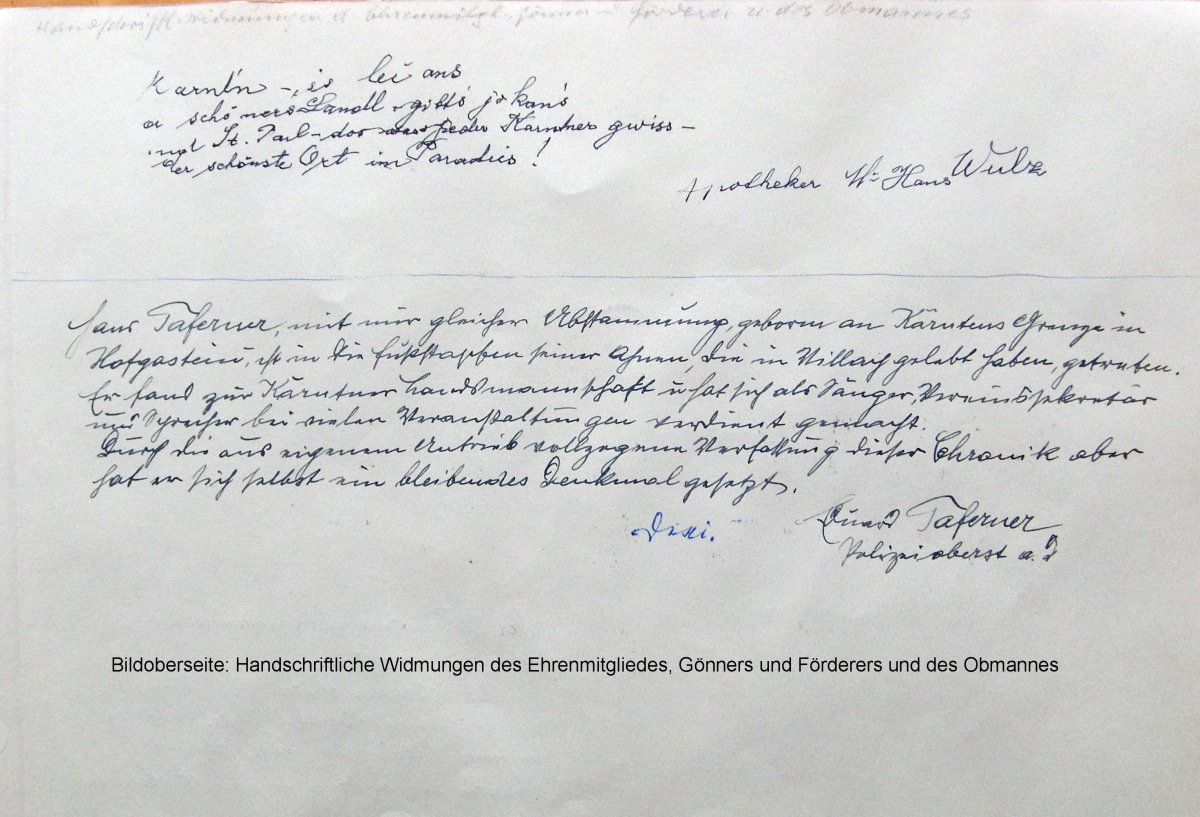 Handschriftl. Widmungen d. Ehrenmitgl. Gönner u Förderer u. des Obmannes
Karnt'n –, is lei ans
a schöners Landl – gibt's jo kan's
und St. Paul – dos was jeder Karntner gwiss –
der schönste Ort im Paradies!
Apotheker Hans Wulz
Hans Taferner, mit mir gleicher Abstammung, geboren an Kärntens Grenze in
Hofgastein, ist in die Fußstapfen seiner Ahnen, die in Villach gelebt haben, getreten.
Er fand zur Kärntner Landsmannschaft u hat sich als Sänger, Vereinssekretär
und Sprecher bei vielen Veranstaltungen verdient gemacht.
Durch die aus eigenem Antrieb vollzogene Verfassung dieser Chronik aber
hat er sich selbst ein bleibendes Denkmal gesetzt.
Eduard Taferner
Polizeioberst a.D
Bildoberseite: Handschriftliche Widmungen des Ehrenmitgliedes, Gönners und Förderers und des Obmannes